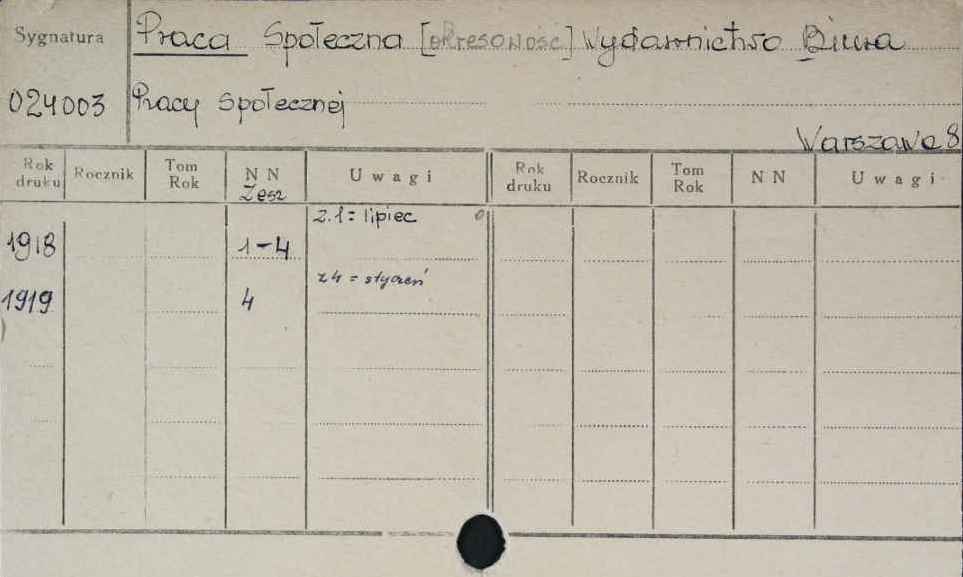 Sygnatura Praca Społeczna [okresowość] Wydawnictwo Biura
024003 Pracy Społecznej
Warszawa 8
Rok druku Rocznik Tom Rok NN Zesz Uwagi Rok druku Rocznik Tom Rok NN Uwagi
z.1 = lipiec
1918 1-4
z 4 = styczeń
1919 4